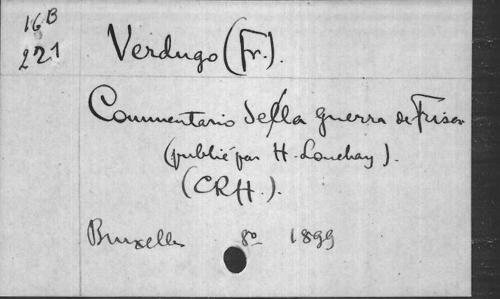 16B
221
Verdugo (Fr.).
Commentario della guerra de Frisa
(publié par H. Lonchay).
(CRH.).
Bruxelles 8o 1899